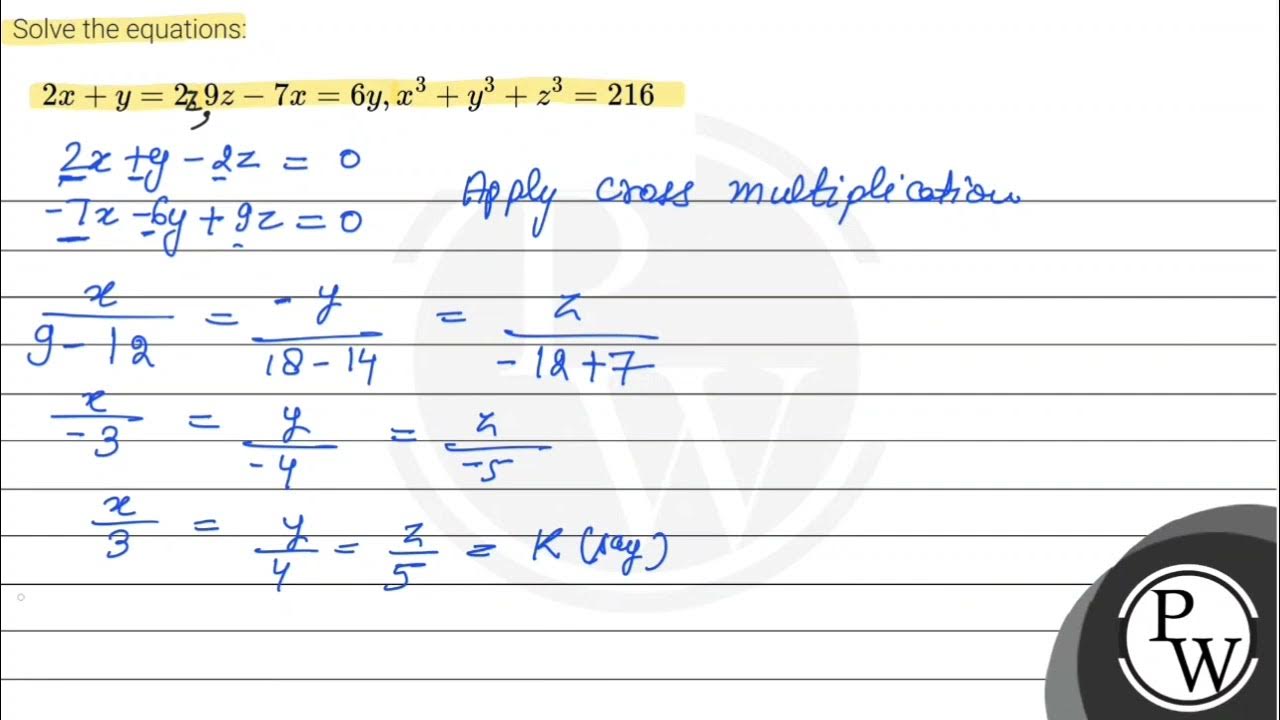 Solve the equations:
2x + y = 2z, 9z − 7x = 6y, x³ + y³ + z³ = 216
2x + y − 2z = 0
−7x − 6y + 9z = 0
Apply cross multiplication
x/(9 − 12) = −y/(18 − 14) = z/(−12 + 7)
x/−3 = y/−4 = z/−5
x/3 = y/4 = z/5 = K (say)
PW